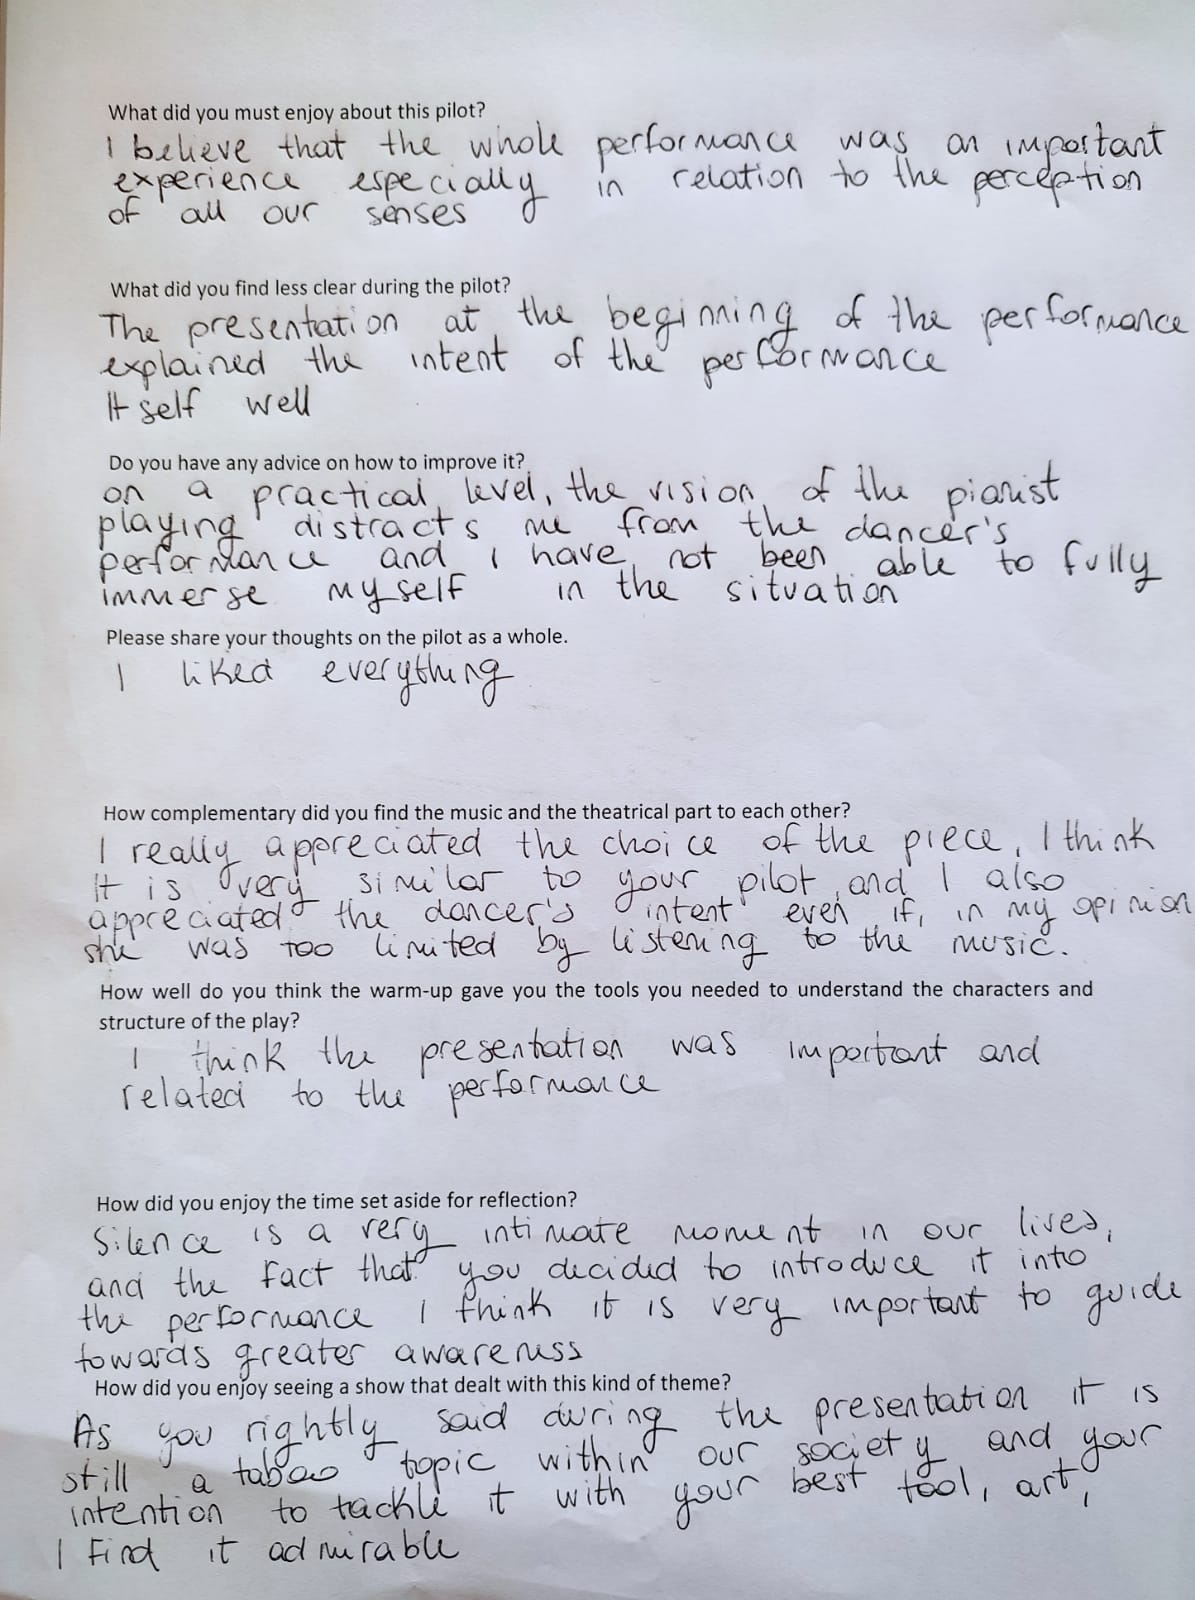 What did you must enjoy about this pilot?
I believe that the whole performance was an important
experience especially in relation to the perception
of all our senses
What did you find less clear during the pilot?
The presentation at the beginning of the performance
explained the intent of the performance
Itself well
Do you have any advice on how to improve it?
on a practical level, the vision of the pianist
playing distracts me from the dancer's
performance and I have not been able to fully
immerse myself in the situation
Please share your thoughts on the pilot as a whole.
I liked everything
How complementary did you find the music and the theatrical part to each other?
I really appreciated the choice of the piece, I think
It is very similar to your pilot, and I also
appreciated the dancer's intent even if, in my opinion
she was too limited by listening to the music.
How well do you think the warm-up gave you the tools you needed to understand the characters and
structure of the play?
I think the presentation was important and
related to the performance
How did you enjoy the time set aside for reflection?
Silence is a very intimate moment in our lives,
and the fact that you decided to introduce it into
the performance I think it is very important to guide
towards greater awareness
How did you enjoy seeing a show that dealt with this kind of theme?
As you rightly said during the presentation it is
still a taboo topic within our society and your
intention to tackle it with your best tool, art,
I find it admirable